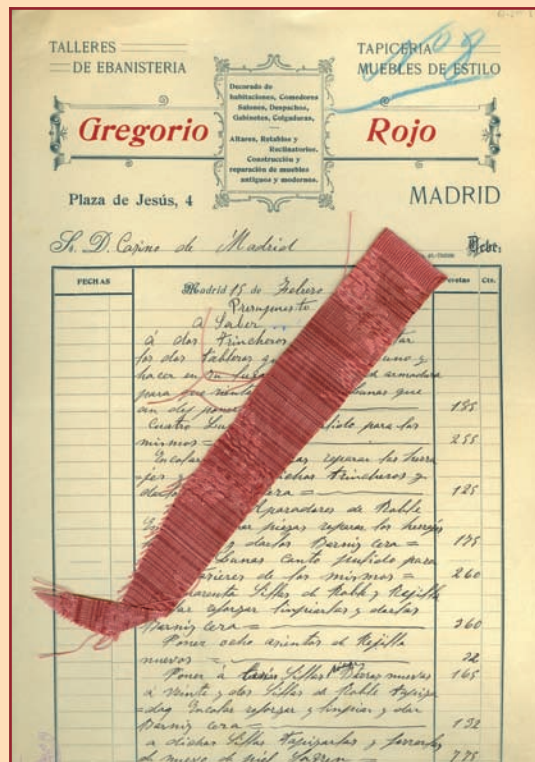 TALLERES
DE EBANISTERIA
TAPICERIA
MUEBLES DE ESTILO
Decorado de
habitaciones, Comedores
Salones, Despachos,
Gabinetes, Colgaduras,
Altares, Retablos y
Reclinatorios.
Construcción y
reparación de muebles
antiguos y modernos.
Gregorio Rojo
Plaza de Jesús, 4
MADRID
Sr. D. Casino de Madrid
Debe:
FECHAS
Pesetas Cts.
Madrid 15 de Febrero
Presupuesto
A Saber
á dos Trincheros
los dos tableros uno y
hacer en su armadura
para que lunas que
185
Cuatro pulido para los
mismos = 255
Encolar reparar los herra
jes y dichos trincheros y
cera = 125
Aparadores de Roble
piezas reparar los herrajes
darlos Barniz cera = 175
Lunas canto pulido para
de los mismos = 260
Sillas de Roble y Rejilla
reforzar limpiarlas y darlas
Barniz cera = 360
Poner ocho asientos de Rejilla
nuevos = 22
Poner á Sillas nuevas 165
á veinte y dos Sillas de Roble tapiza
=das Encolar reforzar y limpiar y dar
Barniz cera = 132
a dichas Sillas tapizarlas y forrarlas
de nuevo de piel 775